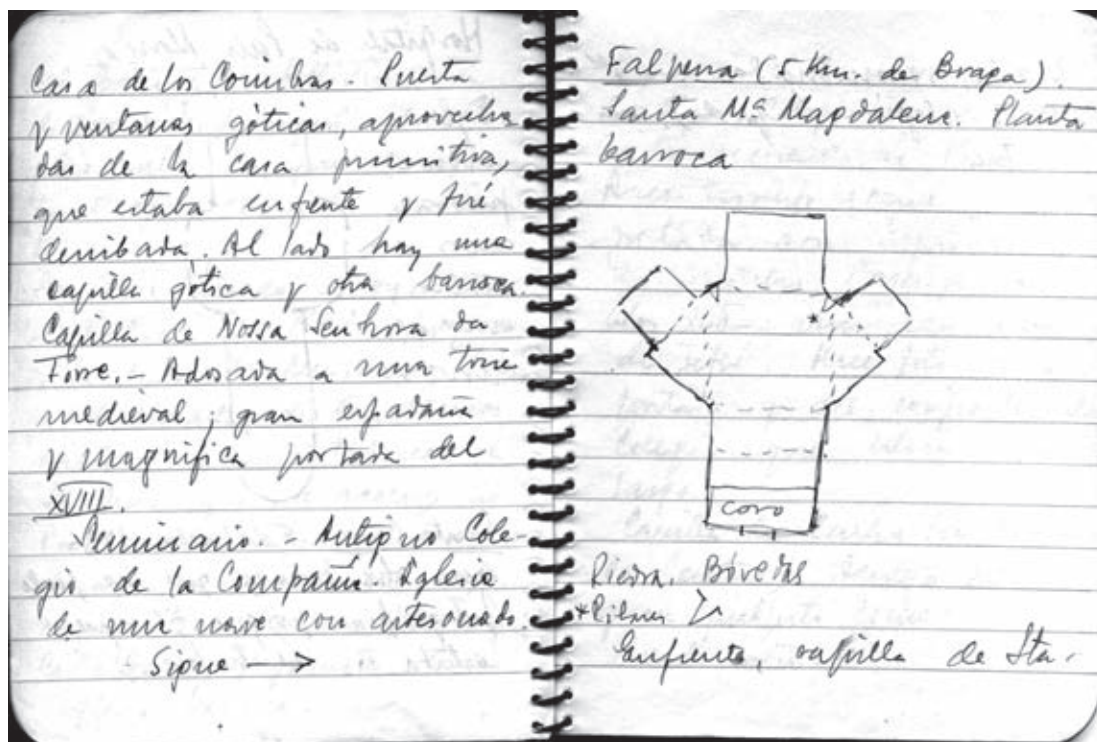 Casa de los Coimbras. Puerta
y ventanas góticas, aprovecha
das de la casa primitiva,
que estaba enfrente y fué
derribada. Al lado hay una
capilla gótica y otra barroca.
Capilla de Nossa Senhora da
Torre. – Adosada a una torre
medieval; gran espadaña
y magnífica portada del
XVIII.
Seminario. – Antiguo Cole-
gio de la Compañía. Iglesia
de una nave con artesonado.
Sigue →
Falperra (5 Km. de Braga).
Santa Mª Magdalena. Planta
barroca
*
coro
Piedra. Bóvedas
*Pilares
Enfrente, capilla de Sta.